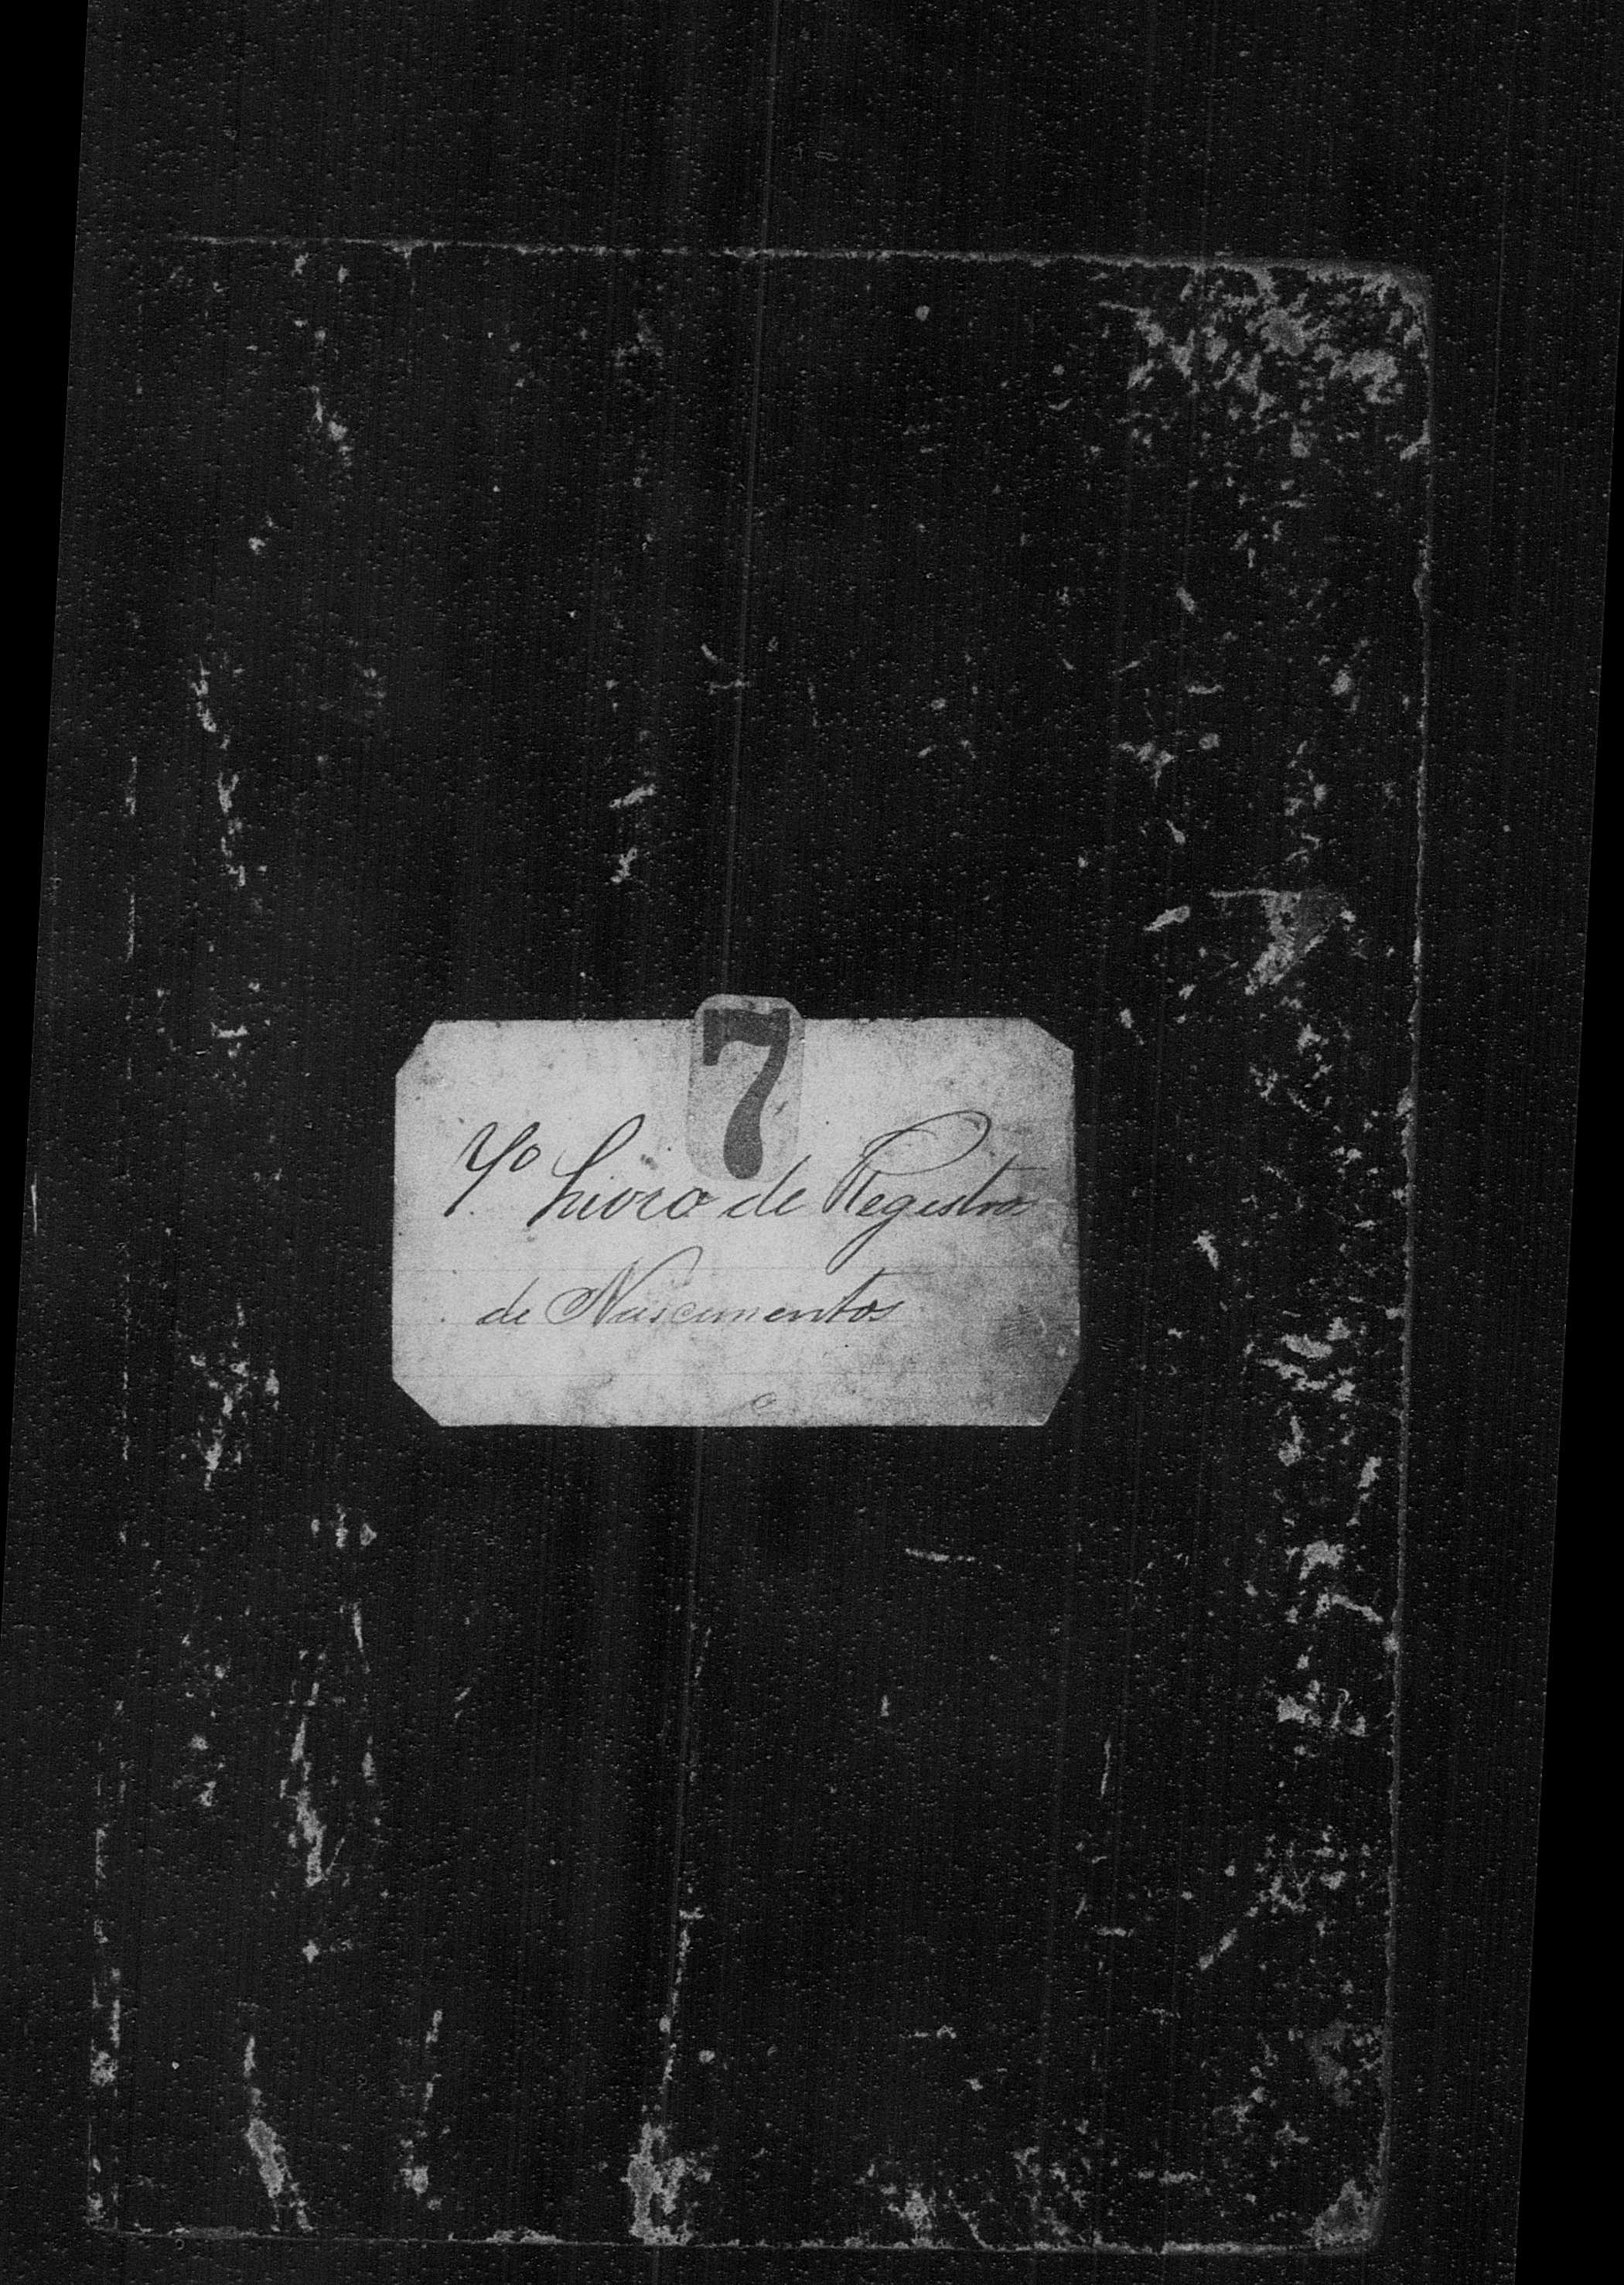 7
7º Livro de Registro
de Nascimentos